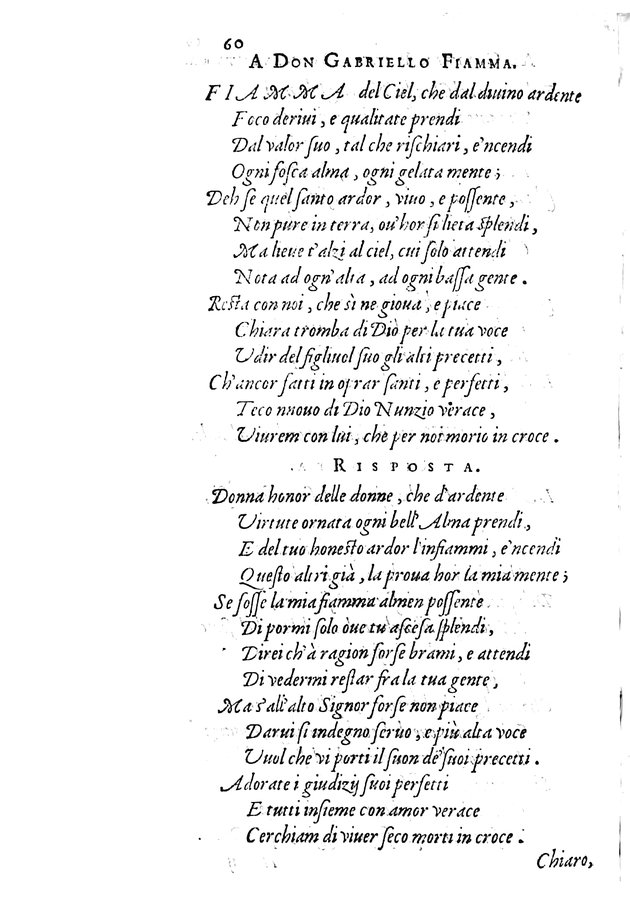 60
A DON GABRIELLO FIAMMA.
FIAMMA del Ciel, che dal diuino ardente
Foco deriui, e qualitate prendi
Dal valor ſuo, tal che riſchiari, e'ncendi
Ogni foſca alma, ogni gelata mente;
Deh ſe quel ſanto ardor, viuo, e poſſente,
Non pure in terra, ou'hor ſi lieta ſplendi,
Ma lieue t'alzi al ciel, cui ſolo attendi
Nota ad ogn'alta, ad ogni baſſa gente.
Reſta con noi, che sì ne gioua, e piace
Chiara tromba di Dio per la tua voce
Vdir del figliuol ſuo gli alti precetti,
Ch'ancor fatti in oprar ſanti, e perfetti,
Teco nuouo di Dio Nunzio verace,
Viurem con lui, che per noi morìo in croce.
RISPOSTA.
Donna honor delle donne, che d'ardente
Virtute ornata ogni bell'Alma prendi,
E del tuo honeſto ardor l'infiammi, e'ncendi
Queſto altri già, la proua hor la mia mente;
Se foſſe la mia fiamma almen poſſente
Di pormi ſolo òue tu aſceſa ſplendi,
Direi ch'à ragion forſe brami, e attendi
Di vedermi reſtar fra la tua gente,
Ma s'all'alto Signor forſe non piace
Darui ſi indegno ſeruo, e più alta voce
Vuol che vi porti il ſuon de' ſuoi precetti.
Adorate i giudizij ſuoi perfetti
E tutti inſieme con amor verace
Cerchiam di viuer ſeco morti in croce.
Chiaro,